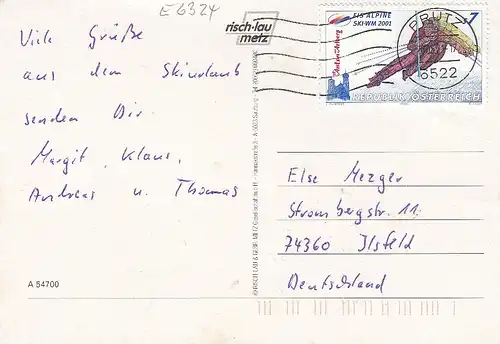 E6324
risch-lau
metz
FIS ALPINE
SKI-WM 2001
7
PRUTZ
6522
REPUBLIK ÖSTERREICH
Viele Grüße
aus dem Skiurlaub
senden Dir
Margit, Klaus,
Andreas u. Thomas
Else Mezger
Strombergstr. 11
74360 Ilsfeld
Deutschland
A 54700